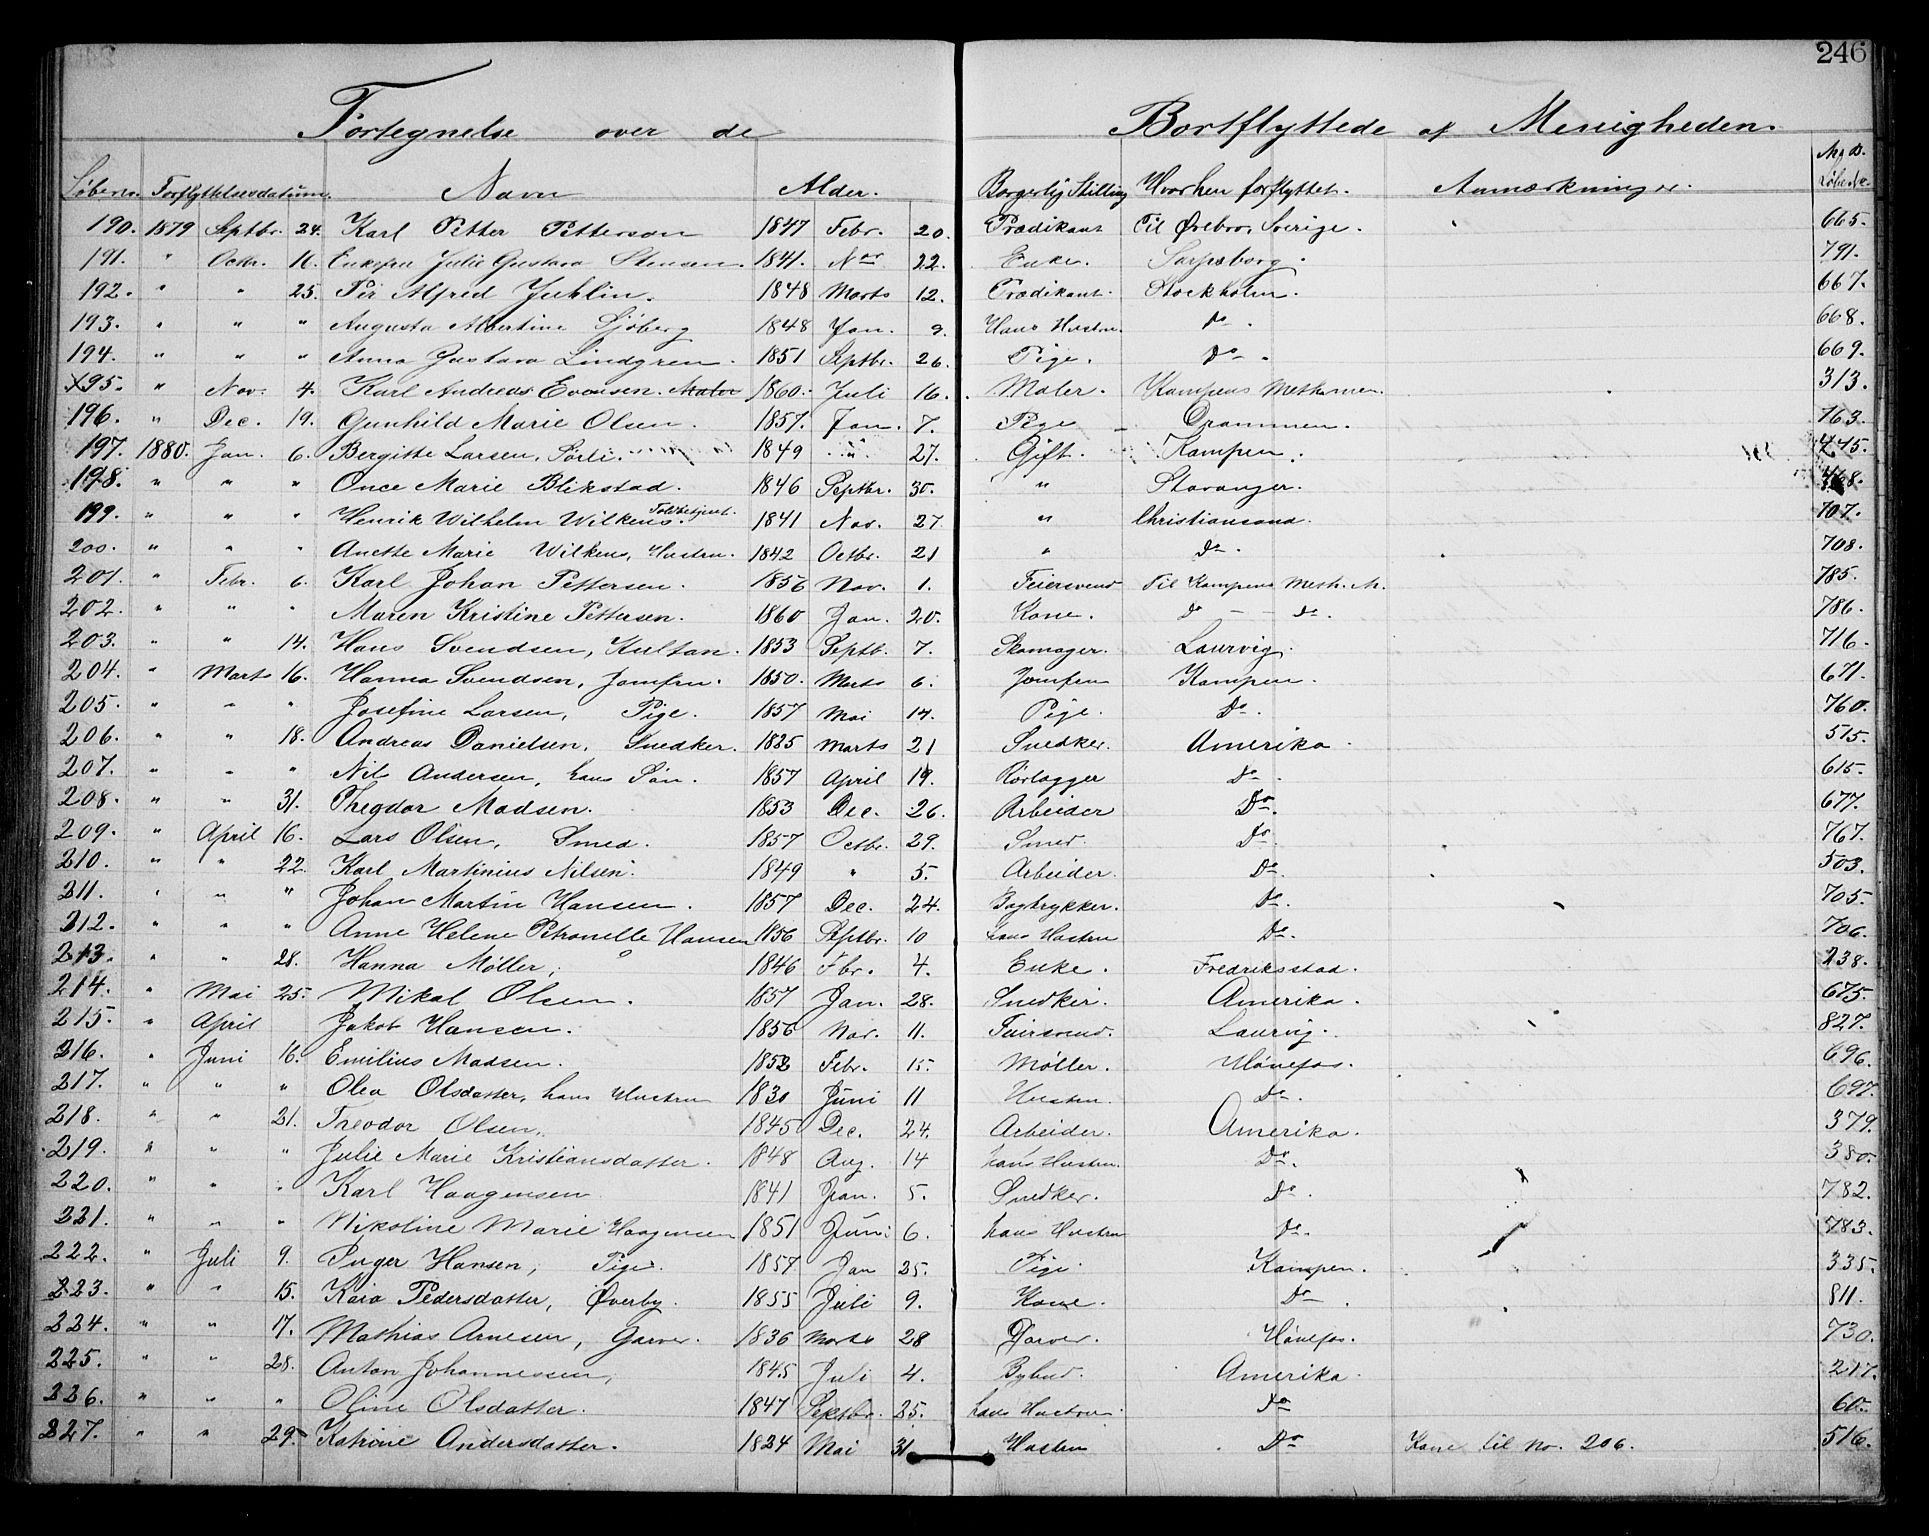 246
Fortegnelse over de Bortflyttede af Menigheden.
Løbenr. Forflyttelsesdatum. Navn Alder. Borgerlig Stilling Hvorhen forflyttet. Anmærkninger.
190. 1879 Septbr. 24. Karl Petter Petterson 1847 Febr. 20. Prædikant Til Ørebro, Sverige. 665.
191. " Octbr. 16. Enkefru Julie Gustava Stensen. 1841. Nov 22. Enke. Sarpsborg. 791.
192. " " 25. Per Alfred Juhlin. 1848 Marts 12. Prædikant. Stockholm. 667.
193. " " " Augusta Albertine Sjöberg 1848 Jan. 9. Hans Hustru. Do. 668.
194. " " " Anna Gustava Lindgren. 1851 Septbr. 26. Pige. Do. 669.
195. " Nov. 4. Karl Andreas Evensen. Maler 1860. Juli 16. Maler. Kampens Meth. men. 313.
196. " Dec. 19. Gunhild Marie Olsen. 1857. Jan. 7. Pige Drammen. 763.
197. 1880. Jan. 6. Bergitte Larsen, Sørli. 1849 " 27. Gift. Kampen. 445.
198. " " " Once Marie Blikstad. 1846 Septbr. 30. " Stavanger.
199. " " " Henrik Wilhelm Wilkens. Toldbetjent. 1841 Nov. 27 " Christiansand. 707.
200. " " " Anette Marie Wilkens, Hustru. 1842 Octbr. 21 " Do. 708.
201. " Febr. 6. Karl Johan Pettersen. 1856 Nov. 1. Feiersvend Til Kampens Meth. M. 785.
202. " " " Maren Kristine Pettersen. 1860 Jan. 20. Kone. do — do. 786.
203. " " 14. Hans Svendsen, Kultan. 1853 Septb. 7. Skomager. Laurvig. 716.
204. " Marts 16. Hanna Svendsen, Jomfru. 1850. Marts 6. Jomfru Kampen. 671.
205. " " " Josefine Larsen, Pige. 1857 Mai 14. Pige. Do. 760.
206. " " 18. Andreas Danielsen, Snedker. 1825 Marts 21 Snedker. Amerika. 515.
207. " " " Nils Andersen, hans Søn. 1857 April 19. Rørlægger Do. 615.
208. " " 31. Theodor Madsen. 1853 Dec. 26. Arbeider Do. 677.
209. " April 16. Lars Olsen, Smed. 1857 Octbr. 29. Smed. Do. 767.
210. " " 22. Karl Martinius Nilsen. 1849 " 5. Arbeider. Do. 503.
211. " " " Johan Martin Hansen. 1857 Dec. 24. Bogtrykker. Do. 705.
212. " " " Anne Helene Petronelle Hansen 1856 Septbr. 10 hans Hustru Do. 706.
213. " " 28. Hanna Møller, 1846 Fbr. 4. Enke. Fredriksstad. 238.
214. " Mai 25. Mikal Olsen. 1857 Jan. 28. Snedker. Amerika. 675.
215. " April Jakob Hansen. 1856 Nov. 11. Feiersvend. Laurvig. 827.
216. " Juni 16. Emilius Madsen. 1852 Febr. 15. Møller. Hønefos. 696.
217. " " " Olea Olsdatter, hans Hustru 1830 Juni 11 Hustru. Do. 697.
218. " " 21. Treodor Olsen. 1845 Dec. 24. Arbeider. Amerika. 379.
219. " " " Julie Marie Kristiansdatter. 1848 Aug. 14 hans Hustru. Do. 380.
220. " " " Karl Haagensen 1841 Jan. 5. Snedker. Do. 782.
221. " " " Nikoline Marie Haagensen 1851 Juni 6. hans Hustru Do. 783.
222. " Juli 9. Inger Hansen, Pige. 1857 Jan 25. Pige. Kampen. 335.
223. " " 15. Kaia Pedersdatter, Øverby. 1855 Juli 9. Kone. Do. 811.
224. " " 17. Mathias Arnesen, Garver. 1836 Marts 28 Garver. Hønefos. 730.
225. " " 28. Anton Johannessen, 1845 Juli 4. Bybud. Amerika. 217.
226. " " " Oline Olsdatter. 1847 Septbr. 25. hans Hustru Do 60.
227. " " 29. Katrine Andersdatter. 1824 Mai 31 Hustru Do Kone til No. 206. 516.